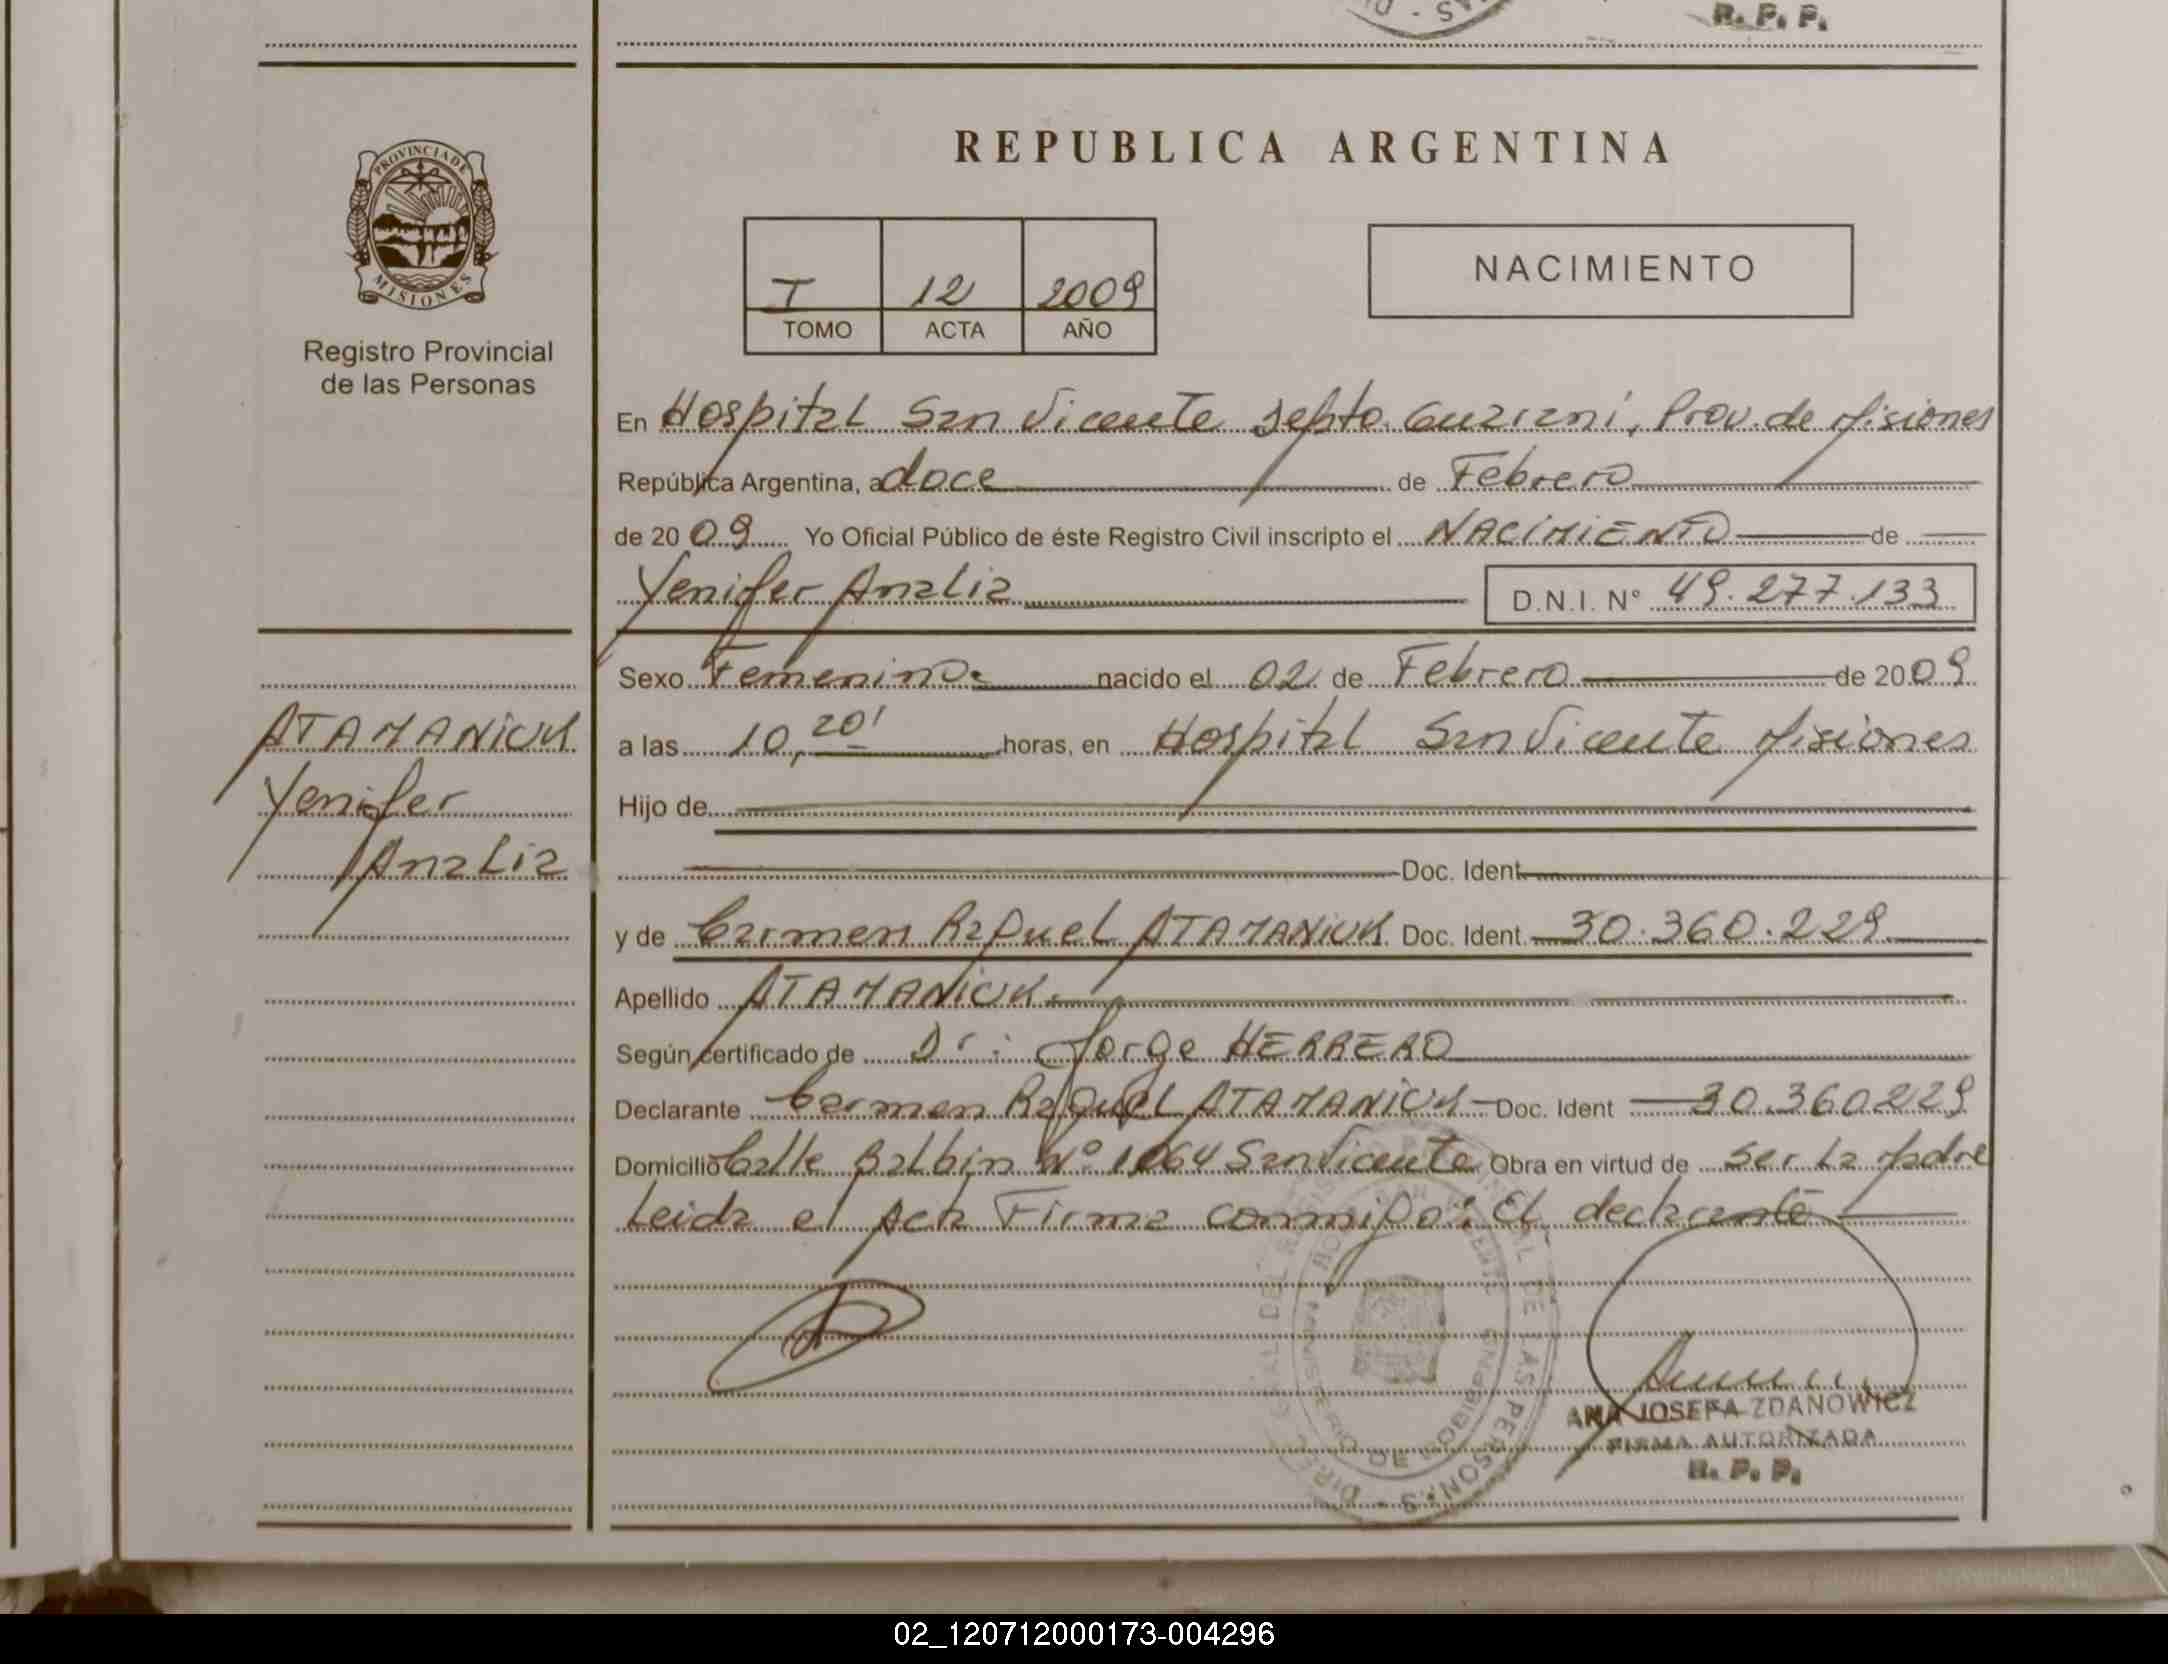 R. P. P.
PROVINCIA DE
MISIONES
Registro Provincial
de las Personas
REPUBLICA ARGENTINA
I 12 2009
TOMO ACTA AÑO
NACIMIENTO
En Hospital San Vicente Depto. Guarani, Prov. de Misiones
República Argentina, a doce de Febrero
de 2009 Yo Oficial Público de éste Registro Civil inscripto el NACIMIENTO de
Yenifer Analia D.N.I. N° 49.277.133
Sexo Femenino nacido el 02 de Febrero de 2009
a las 10,20' horas, en Hospital San Vicente Misiones
Hijo de
Doc. Ident
y de Carmen Raquel ATAMANIUK Doc. Ident 30.360.229
Apellido ATAMANIUK
Según certificado de Dr: Jorge HERRERO
Declarante Carmen Raquel ATAMANIUK Doc. Ident 30.360229
Domicilio Calle Balbin N° 1064 San Vicente Obra en virtud de ser la Madre
Leida el Acta Firma conmigo: El declarante
ATAMANIUK
Yenifer
Analia
ANA JOSEFA ZDANOWICZ
FIRMA AUTORIZADA
R. P. P.
02_120712000173-004296